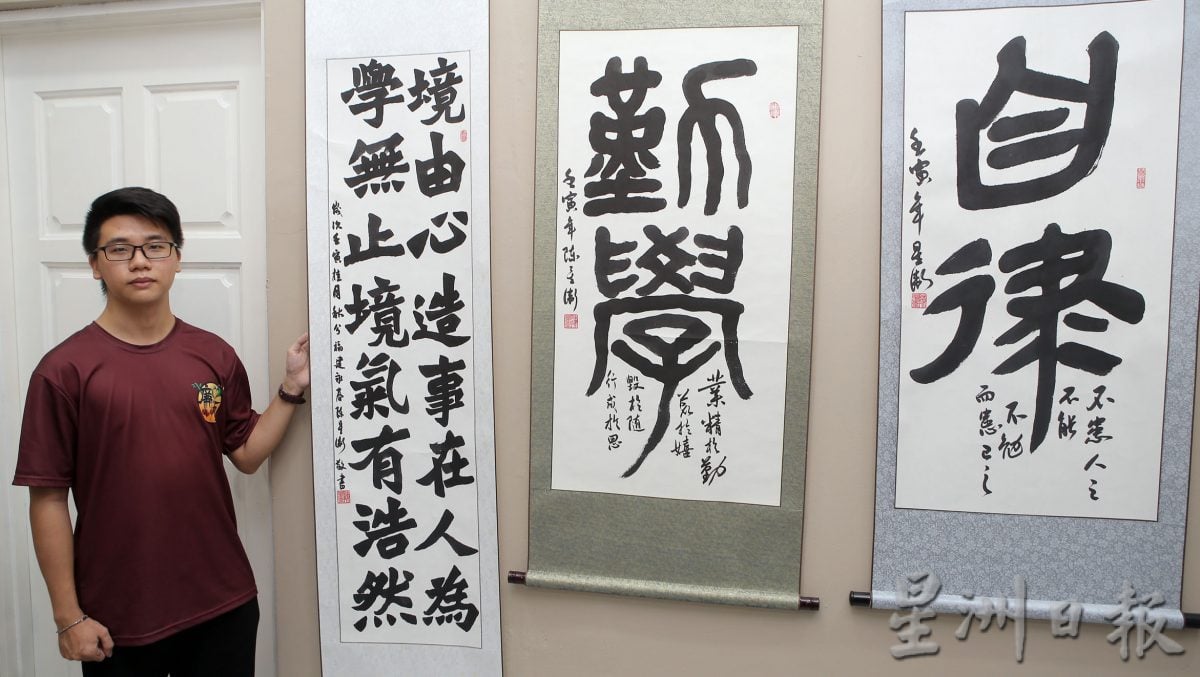 境由心造事在人為
學無止境氣有浩然
歲次壬寅桂月秋分福建永春陳星 敬書
勤學
業精於勤
荒於嬉
毀於随
行成於思
壬寅年陳星
自律
不患人之
不能
不勉
而患己之
壬寅年星
星洲日報